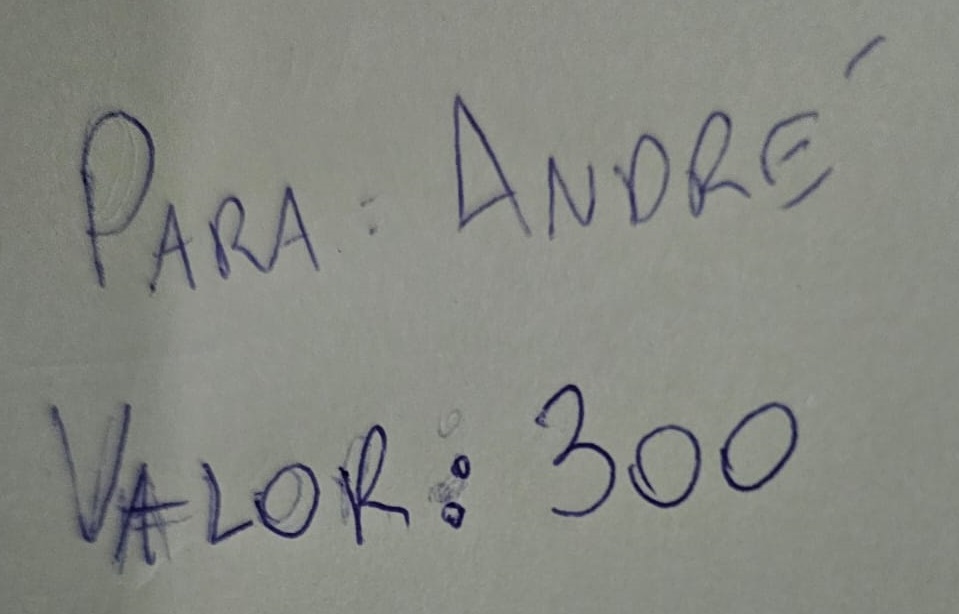 PARA: ANDRÉ
VALOR: 300